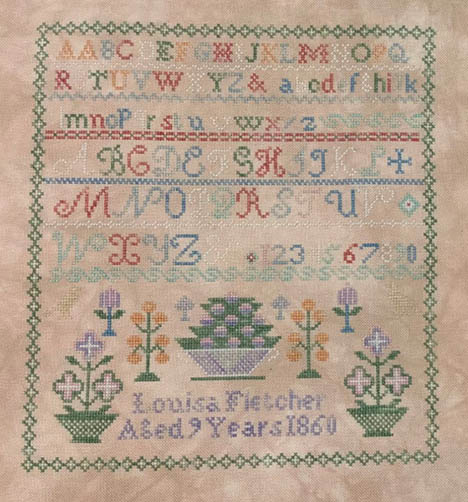 A A B C D E F G H J K L M N O P Q
R T U V W Y Z & a b c d e f h i k
m n o p r s t u w x z
A B C D E F G H I J K L
M N O P R S T U V
W X Y Z 1 2 3 4 5 6 7 8 9 10
Louisa Fletcher
Aged 9 Years 1860